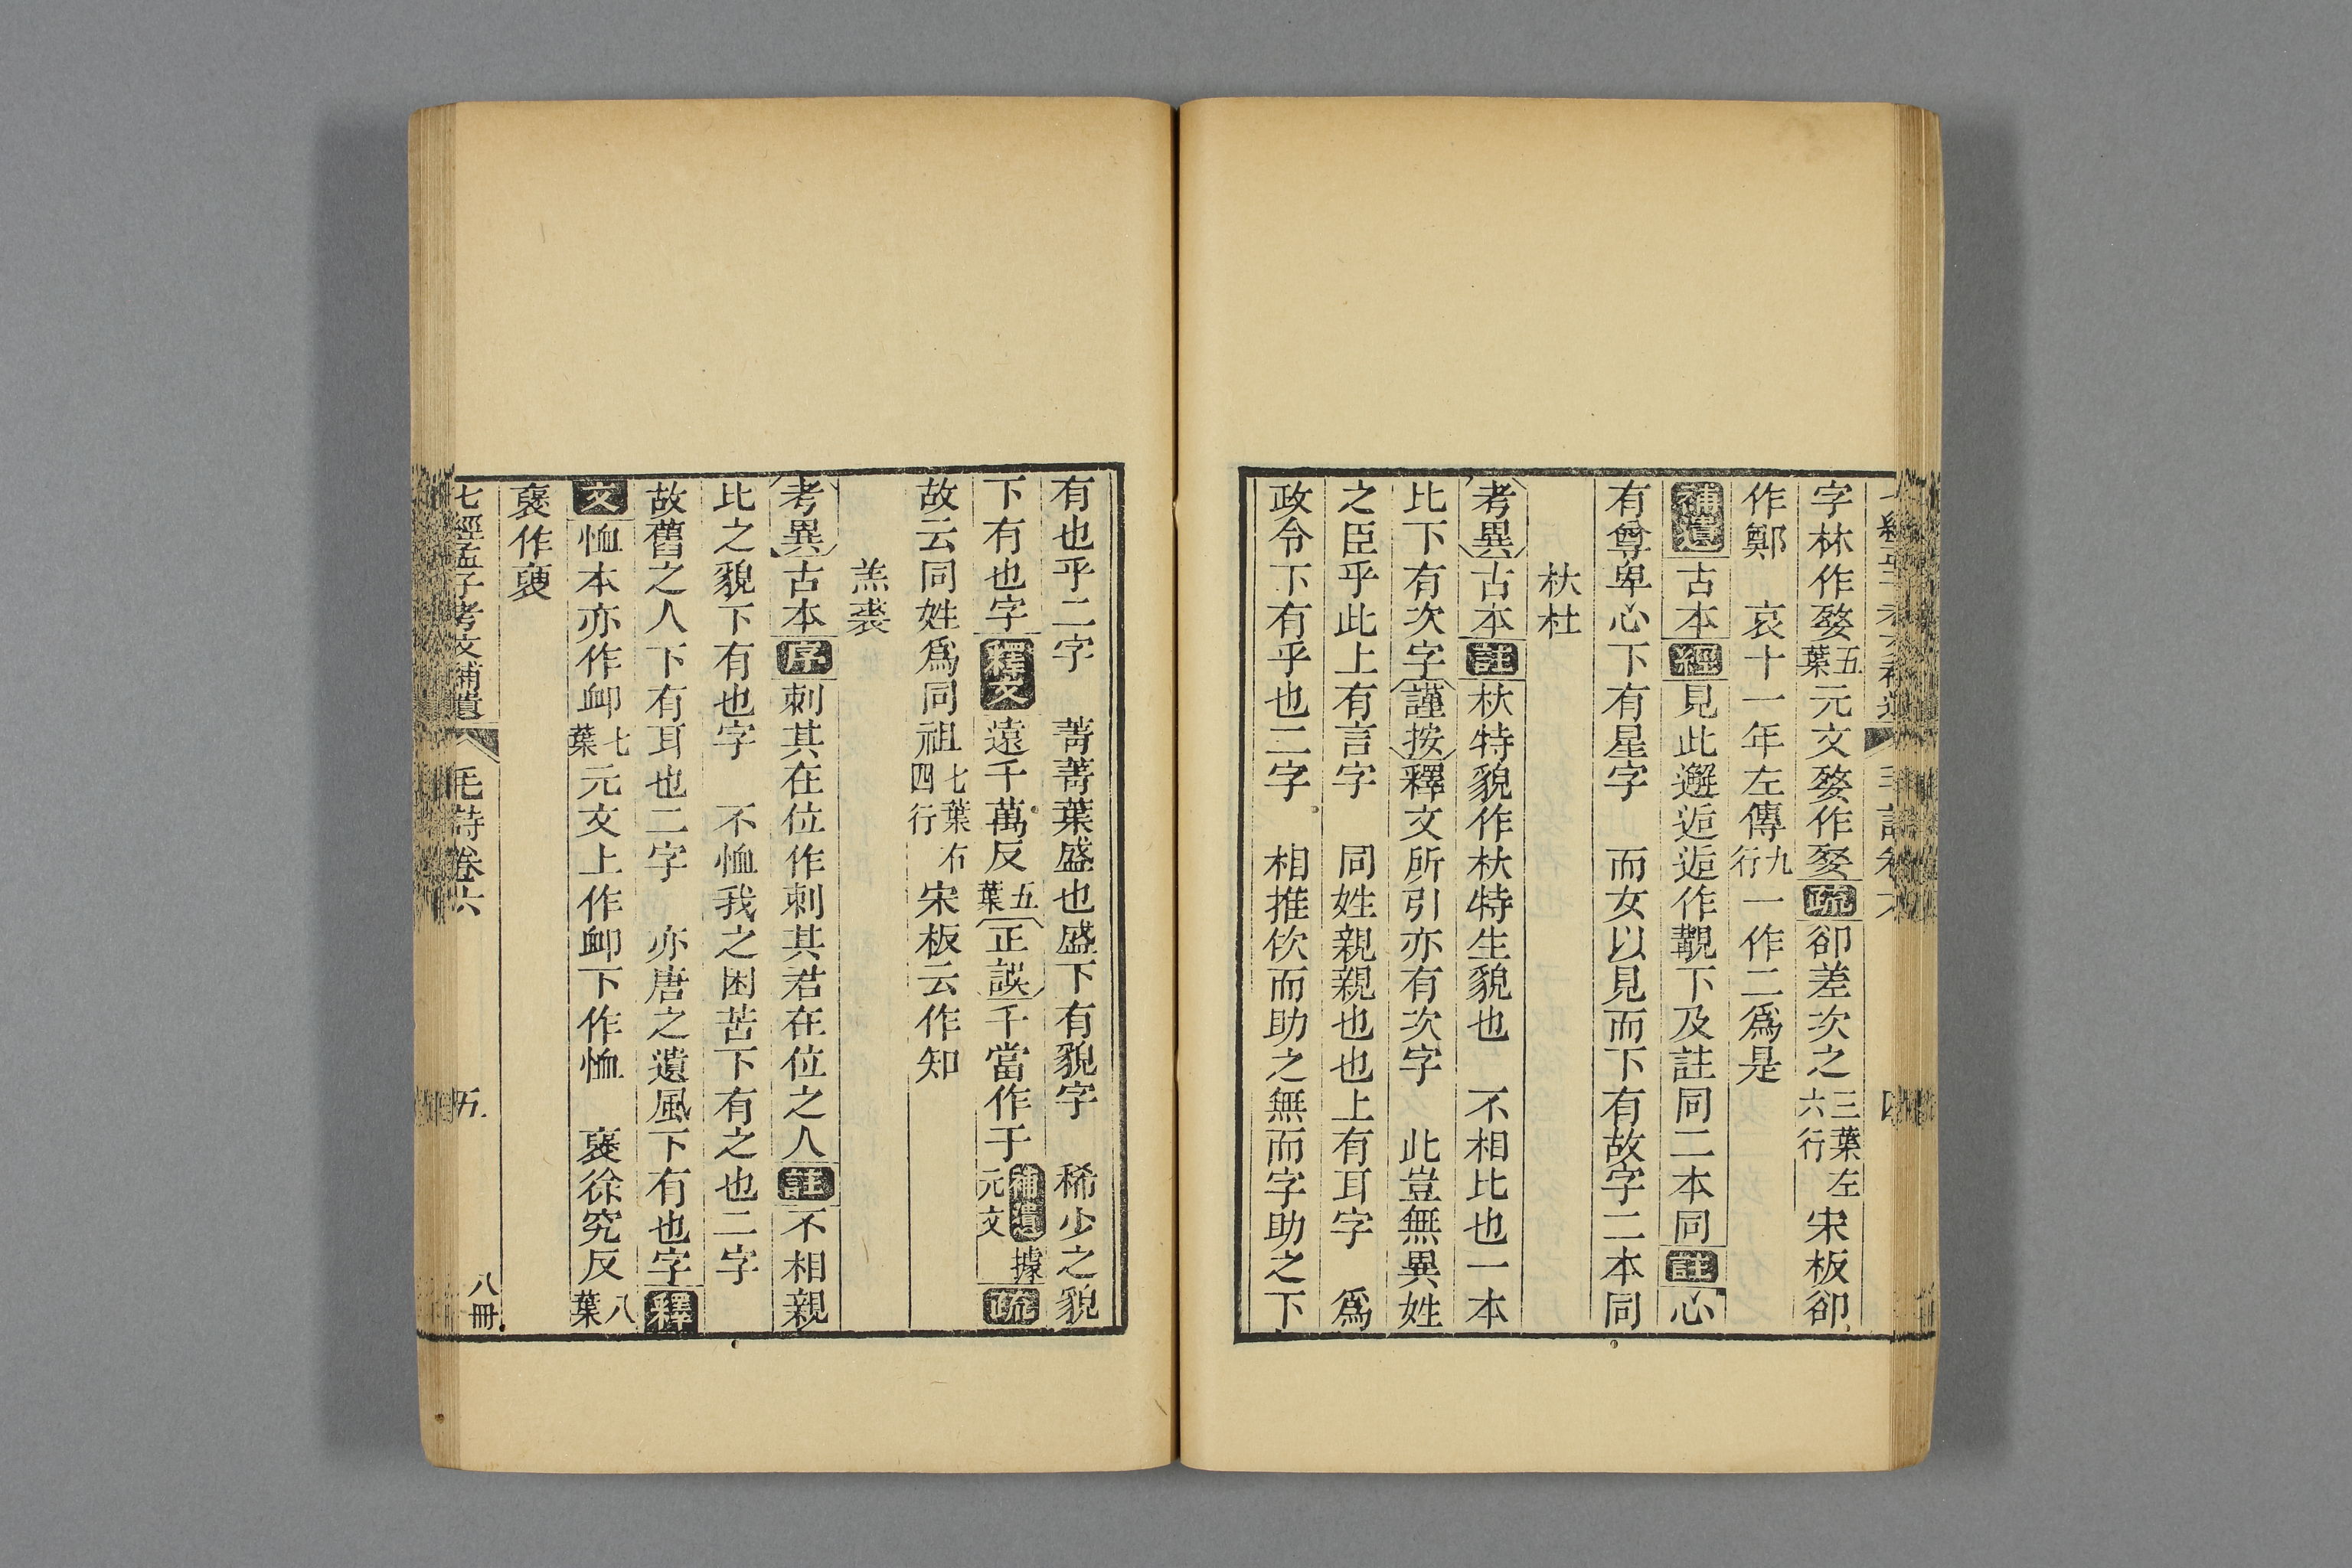 字林作婺五葉元文婺作婺疏卻差次之三葉左六行宋板卻
作鄭　哀十一年左傳九行一作二爲是
補遺古本經見此邂逅逅作覯下及註同二本同註心
有尊卑心下有星字　而女以見而下有故字二本同
杕杜
考異古本註杕特貌作杕特生貌也　不相比也一本
比下有次字謹按釋文所引亦有次字　此豈無異姓
之臣乎此上有言字　同姓親親也也上有耳字　爲
政令下有乎也二字　相推佽而助之無而字助之下
有也乎二字　菁菁葉盛也盛下有貌字　稀少之貌
下有也字釋文遠千萬反五葉正誤千當作于補遺據元文疏
故云同姓爲同祖七葉右四行宋板云作知
羔裘
考異古本序刺其在位作刺其君在位之人註不相親
比之貌下有也字　不恤我之困苦下有之也二字
故舊之人下有耳也二字　亦唐之遺風下有也字釋
文恤本亦作卹七葉元文上作卹下作恤　褎徐究反八葉
褎作褏
七經孟子考文補遺　毛詩卷六　五　八冊